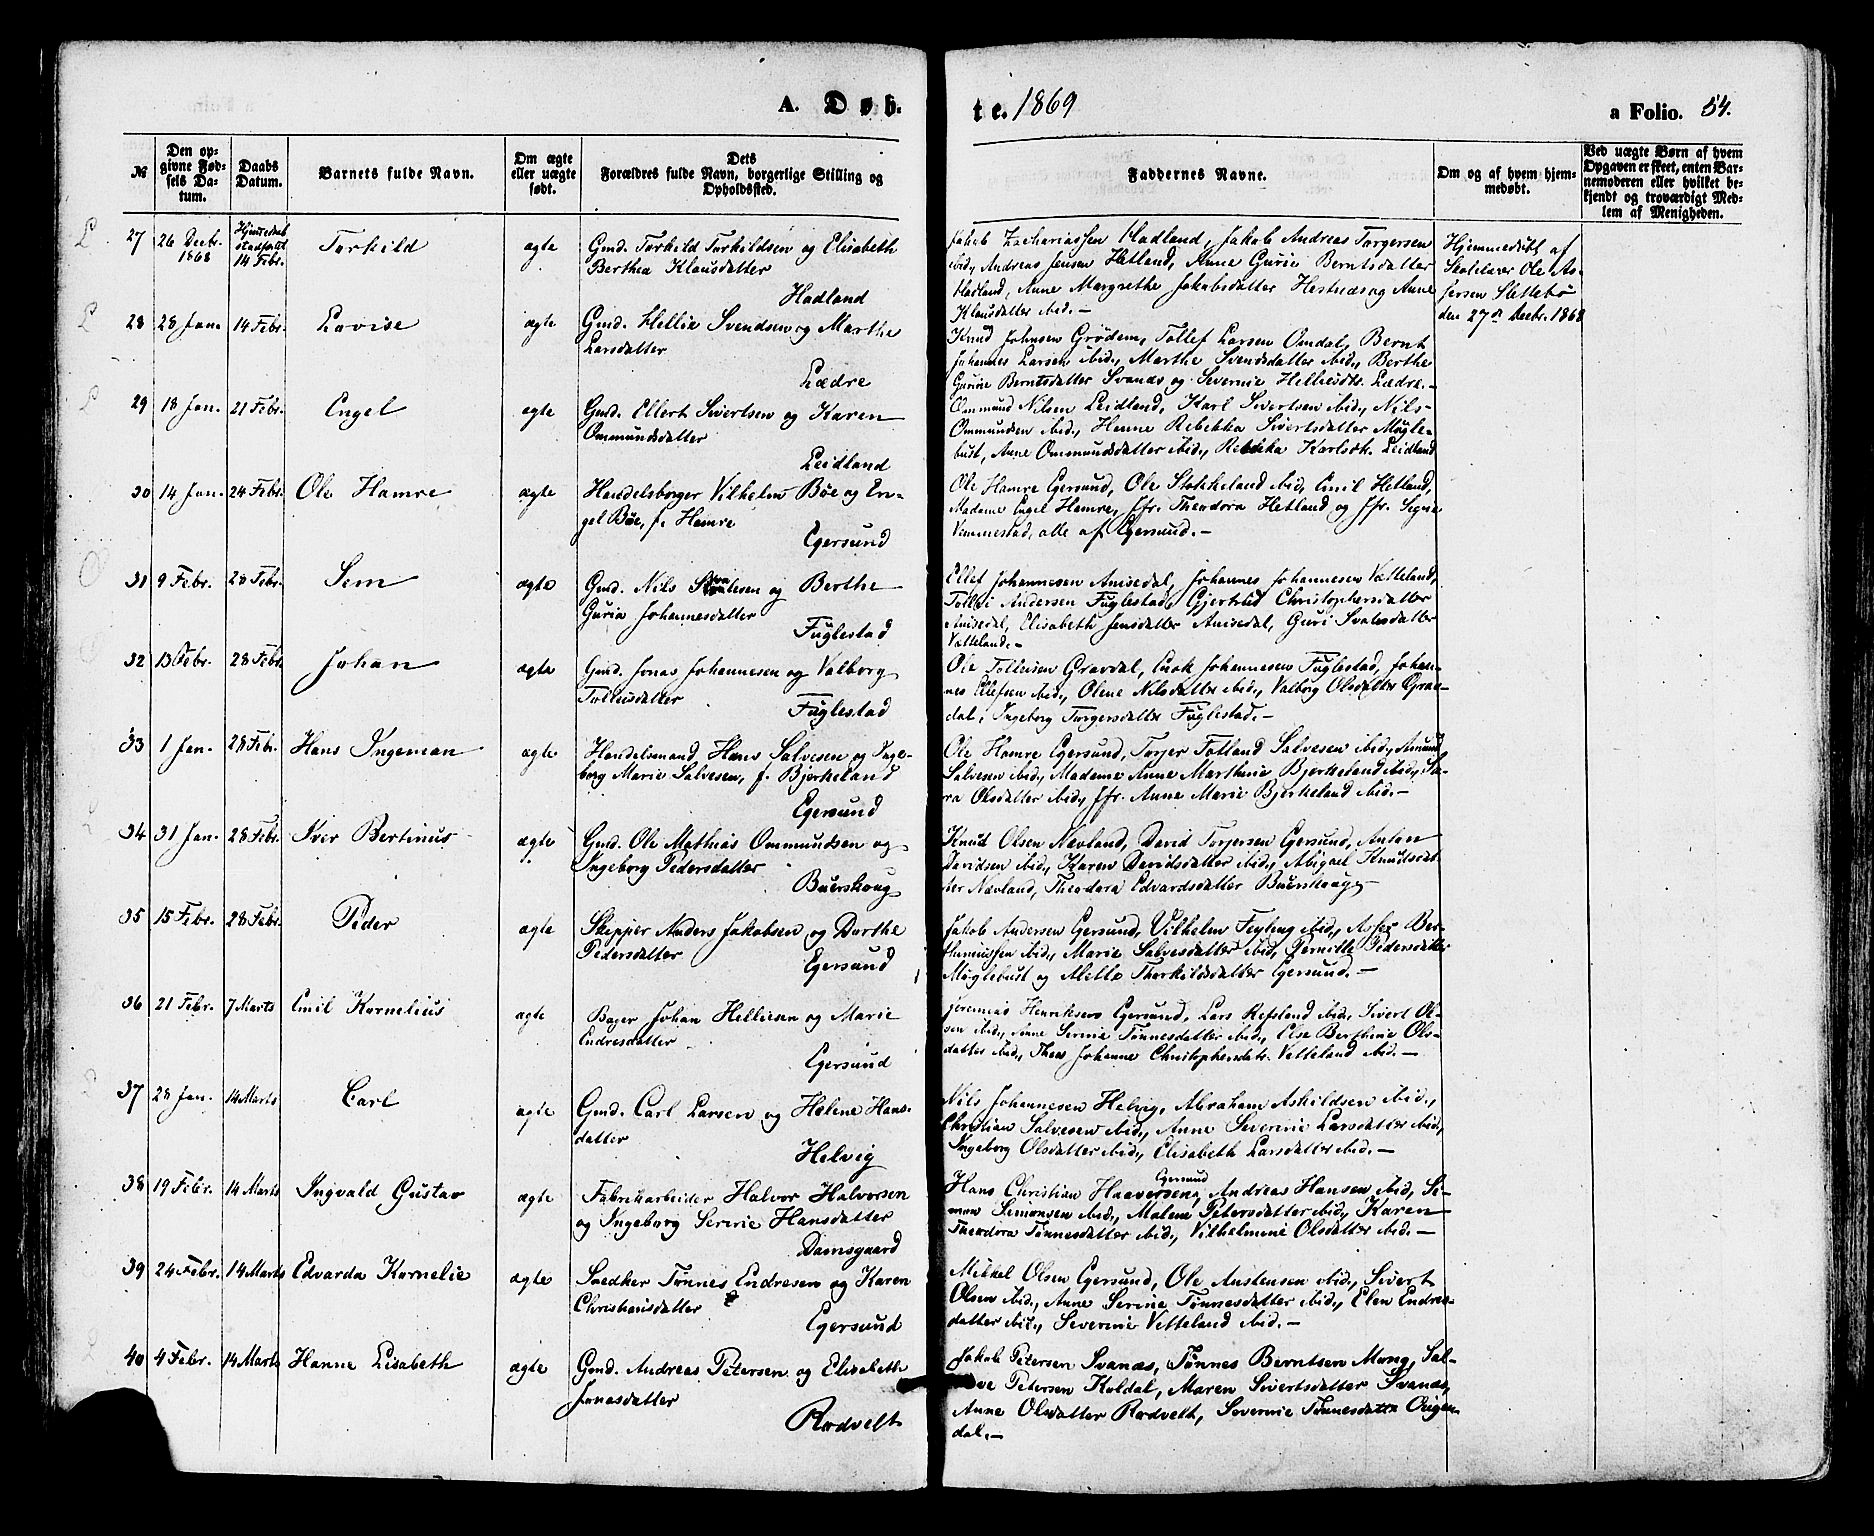 A. Døb-
te. 1869
a Folio. 54.
№
Den op-
givne Fød-
sels Da-
tum.
Daabs
Datum.
Barnets fulde Navn.
Om ægte
eller uægte
født.
Dets
Forældres fulde Navn, borgerlige Stilling og
Opholdssted.
Faddernes Navne.
Om og af hvem hjem-
medøbt.
Ved uægte Børn af hvem
Opgaven er skeet, enten Bar-
nemoderen eller hvilket be-
kjendt og troværdigt Med-
lem af Menigheden.
27 26 Decbr. 1868 Hjemmedaab stadfæstet 14 Febr. Torkild ægte
Gmd. Torkild Torkildsen og Elisabeth
Berthea Klausdatter
Hadland
Jakob Zachariassen Hadland, Jakob Andreas Torgersen
ibid., Andreas Jensen Hetland, Anne Gurie Berntsdatter
Hadland, Anne Margrethe Jakobsdatter Hestnæs og Anne
Klausdatter ibid.-
Hjemmedøbt af
Skolelærer Ole As-
sersen Slettebø
den 27de Decbr. 1868
28 28 Jan. 14 Febr. Lovise ægte
Gmd. Hellie Svendsen og Marthe
Larsdatter
Lædre
Knud Johnsen Grødem, Tollef Larsen Omdal, Bernt
Johannes Larsen ibid., Marthe Svendsdatter ibid., Berthe
Gurine Berntsdatter Svanæs og Severine Helliesdtr. Lædre.-
29 18 Jan. 21 Febr. Engel ægte
Gmd. Ellert Sivertsen og Karen
Ommundsdatter
Leidland
Ommund Nilsen Leidland, Karl Sivertsen ibid., Nils
Ommundsen ibid., Hanne Rebekka Sivertsdatter Møgle-
bust, Anne Ommundsdatter ibid., Rebekka Karlsdt. Leidland
30 14 Jan. 24 Febr. Ole Hamre ægte
Handelsborger Vilhelm Bøe og En-
gel Bøe, f. Hamre
Egersund
Ole Hamre Egersund, Ole Stokkeland ibid., Emil Hetland,
Madame Engel Hamre, Jfr. Theodora Hetland og Jfr. Signe
Vemmestad, alle af Egersund.-
31 9 Febr. 28 Febr. Sem ægte
Gmd. Nils Svalesen og Berthe
Guria Johannesdatter
Fuglestad
Ellef Johannesen Anisedal, Johannes Johannesen Vætteland,
Tollei Andersen Fuglestad, Gjertrud Christophersdatter
Anisedal, Elisabeth Jensdatter Anisedal, Guri Svalesdatter
Vætteland.-
32 13 Febr. 28 Febr. Johan ægte
Gmd. Jonas Johannesen og Valborg
Tolleisdatter
Fuglestad
Ole Tolleisen Gravdal, Enok Johannesen Fuglestad, Johan-
nes Ellefsen ibid., Olene Nilsdatter ibid., Valborg Olsdatter Grav-
dal, Ingeborg Torgersdatter Fuglestad.-
33 1 Jan. 28 Febr. Hans Ingeman ægte
Handelsmand Hans Salvesen og Inge-
borg Marie Salvesen, f. Bjerkeland
Egersund
Ole Hamre Egersund, Torjer Fotland Salvesen ibid., Amund
Salvesen ibid., Madame Anne Marthine Bjerkeland ibid., Sa-
ra Olsdatter ibid., Jfr. Anne Marie Bjerkeland ibid.-
34 31 Jan. 28 Febr. Iver Bertinus ægte
Gmd. Ole Mathias Ommundsen og
Ingeborg Pedersdatter
Buerskoug
Knud Olsen Nævland, David Torjersen Egersund, Anton
Davidsen ibid., Karen Davidsdatter ibid., Abigael Knudsdat-
ter Nævland, Theodora Edvardsdatter Buerskoug.-
35 15 Febr. 28 Febr. Peder ægte
Skipper Anders Jakobsen og Dorthe
Pedersdatter
Egersund
Jakob Andersen Egersund, Vilhelm Feyling ibid., Asser Ber-
thiniussen ibid., Marie Salvesdatter ibid., Pernille Pedersdatter
Møglebust og Mille Thorkildsdatter Egersund.-
36 21 Febr. 7 Marts Emil Kornelius ægte
Bager Johan Helliesen og Marie
Endresdatter
Egersund
Jeremias Henriksen Egersund, Lars Refsland ibid., Sivert Ol-
sen ibid., Anne Serine Tønnesdatter ibid., Else Berthine Ols-
datter ibid., Thea Johanne Christophersdatr. Vetteland ibid.-
37 28 Jan. 14 Marts Carl ægte
Gmd. Carl Larsen og Helene Hans-
datter
Helvig
Nils Johannesen Helvig, Abraham Askildsen ibid.,
Christian Salvesen ibid., Anne Severine Larsdatter ibid.,
Ingeborg Olsdatter ibid., Elisabeth Larsdatter ibid.-
38 19 Febr. 14 Marts Ingvald Gustav ægte
Fabrikarbeider Halvor Halvorsen
og Ingeborg Serine Hansdatter
Damsgaard
Hans Christian Haaversen Egersund, Andreas Hansen ibid., Si-
mon Simonsen ibid., Malene Petersdatter ibid., Karen
Theodora Tønnesdatter ibid., Vilhelmine Olsdatter ibid.-
39 24 Febr. 14 Marts Edvarda Kornelie ægte
Snedker Tønnes Endresen og Karen
Christiansdatter
Egersund
Mikkel Olsen Egersund, Ole Austensen ibid., Sivert
Olsen ibid., Anne Serine Tønnesdatter ibid., Elen Endres-
datter ibid., Severine Vetteland ibid.-
40 4 Febr. 14 Marts Hanne Lisabeth ægte
Gmd. Andreas Petersen og Elisabeth
Jonasdatter
Rødvelt
Jakob Petersen Svanæs, Tønnes Berntsen Mong, Sal-
ve Petersen Koldal, Maren Sivertsdatter Svanæs,
Anne Olsdatter Rødvelt, Severine Tønnesdatter Eigen-
dal.-